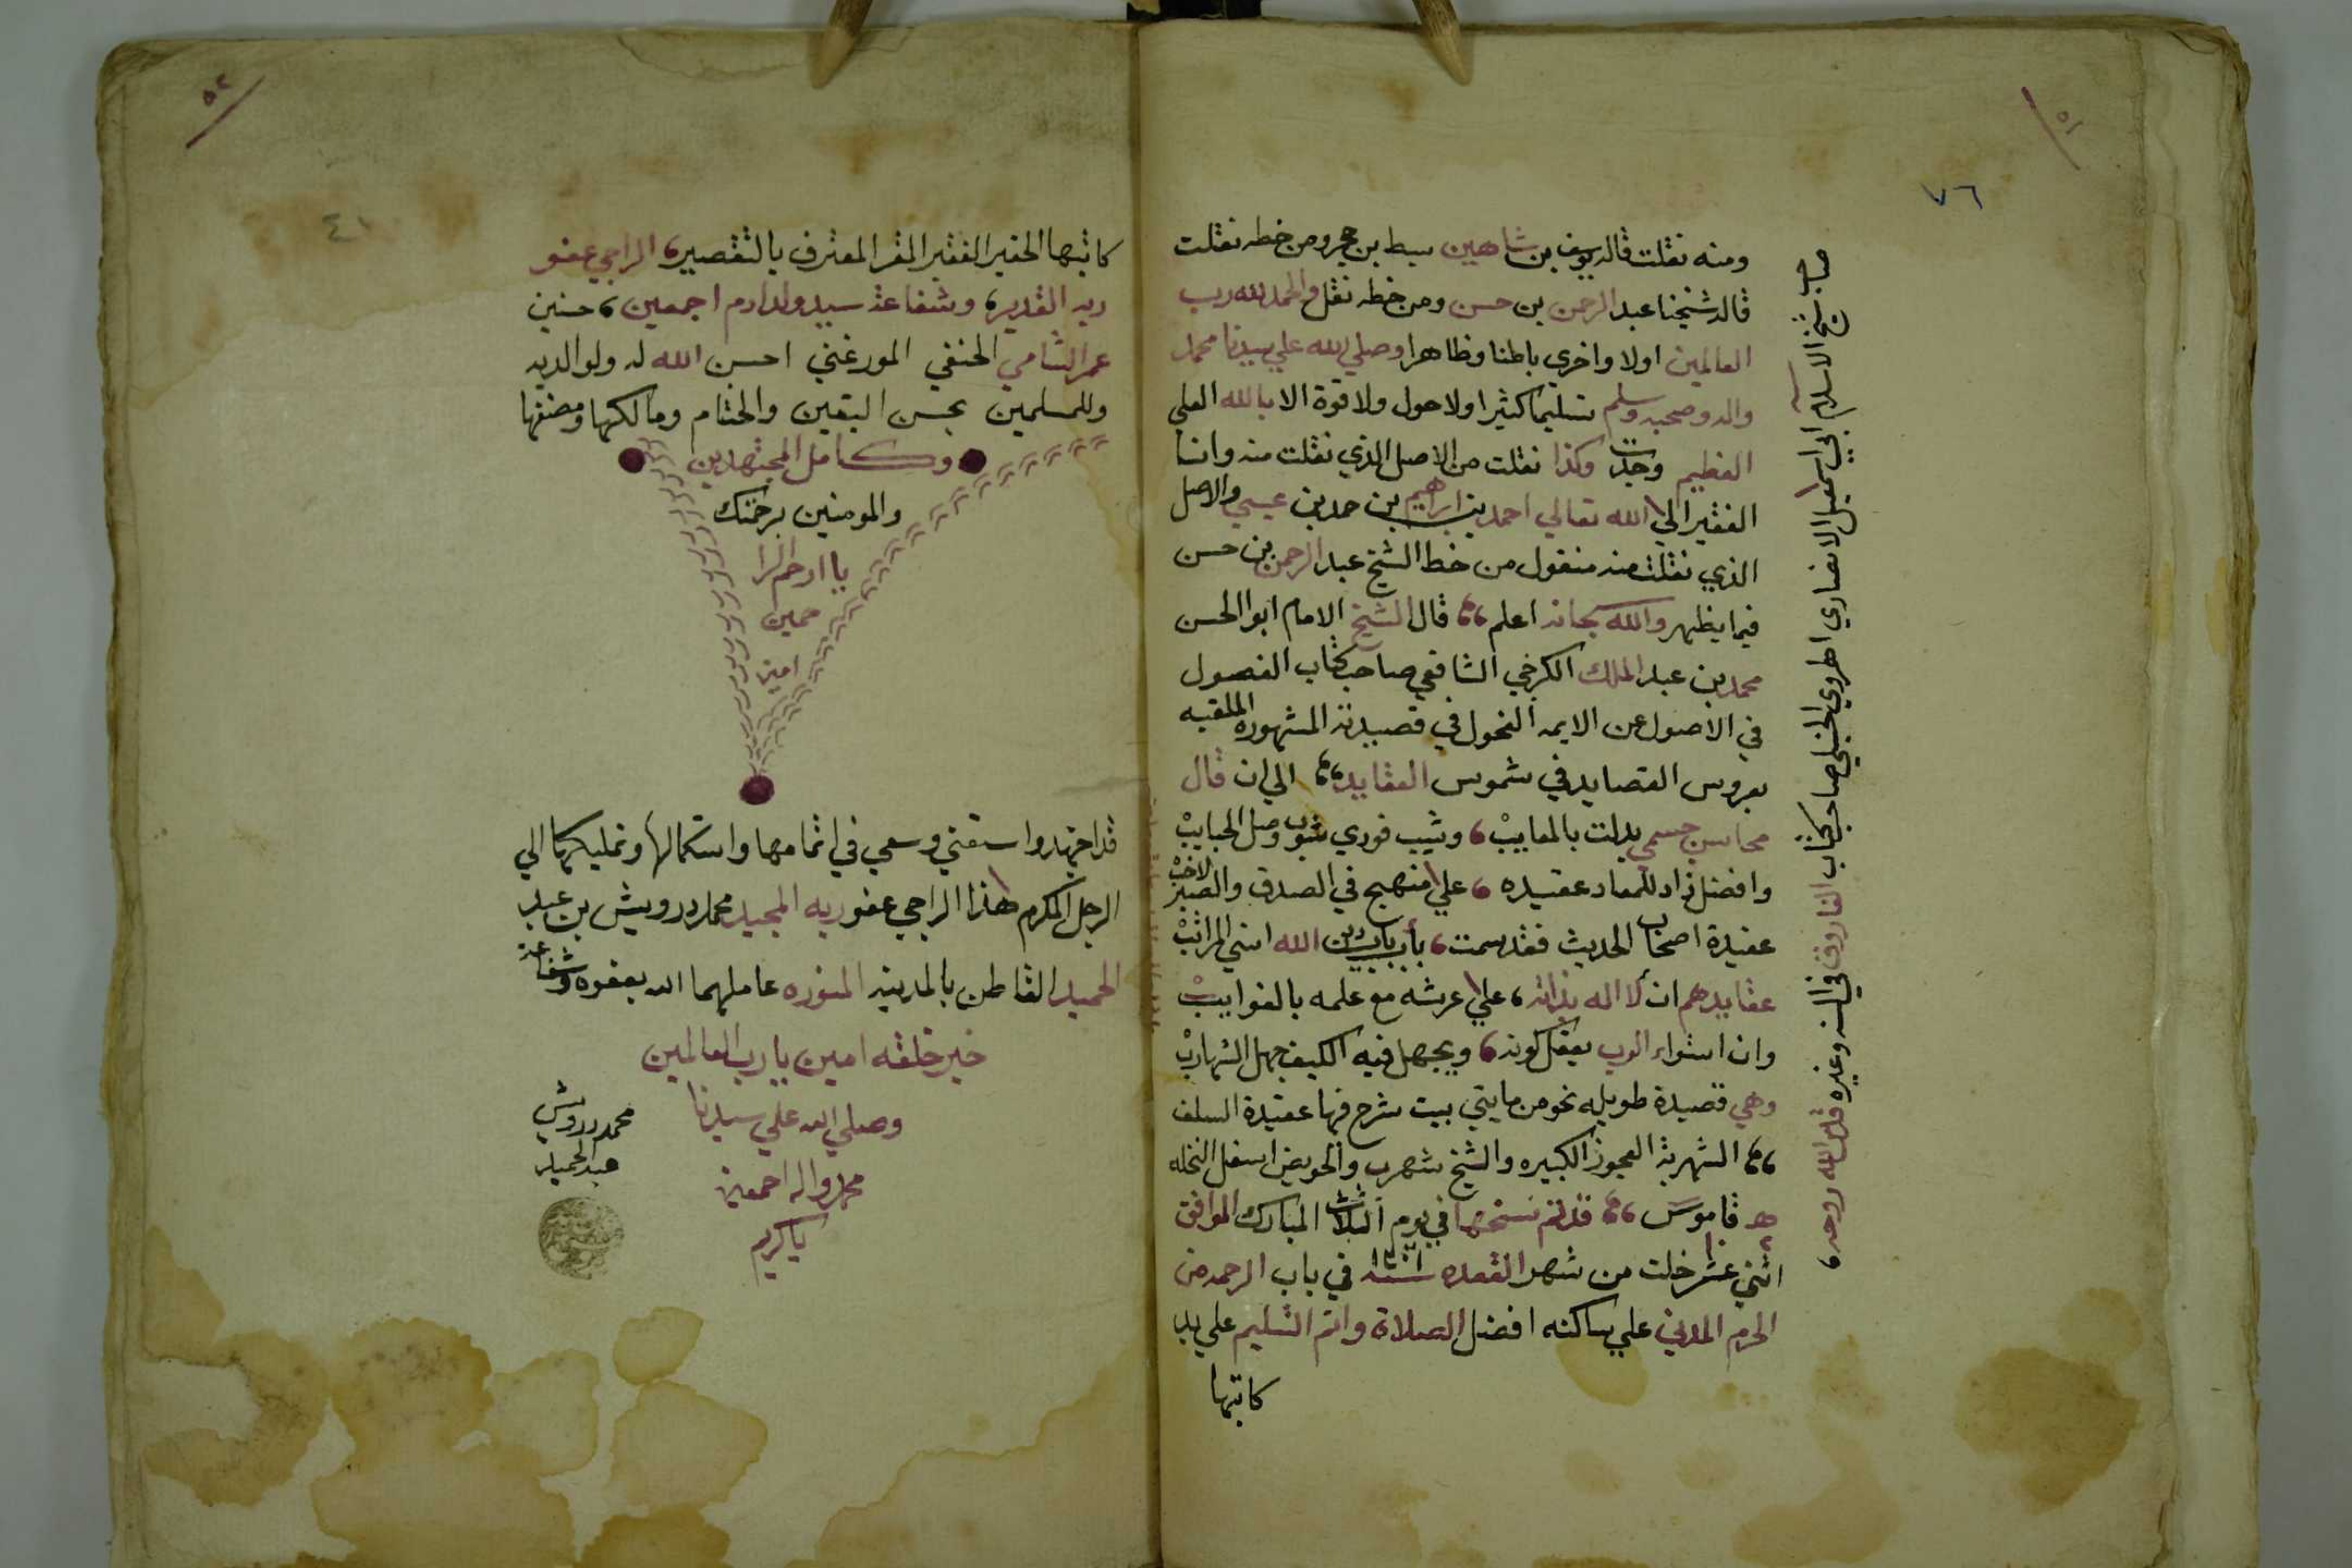 ٥١
٧٦
ومنه نقلت قاله يوسف بن شاهين سبط بن حجر ومن خطه نقلت
قاله شيخنا عبد الرحمن بن حسن ومن خطه نقل والحمد لله رب
العالمين اولا واخرى باطنا وظاهرا وصلي الله علي سيدنا محمد
واله وصحبه وسلم تسليما كثيرا ولا حول ولا قوة الا بالله العلي
العظيم وجدت وكذا نقلت من الاصل الذي نقلت منه وانا
الفقير الي الله تعالي احمد بن ابراهيم بن حمد بن عيسي والاصل
الذي نقلت منه منقول من خط الشيخ عبد الرحمن بن حسن
فيما يظهر والله سبحانه اعلم قال الشيخ الامام ابو الحسن
محمد بن عبد الملك الكرخي الشافعي صاحب كتاب الفصول
في الاصول عن الايمه الفحول في قصيدته المشهوره الملقبه
بعروس القصايد في شموس العقايد الي ان قال
محاسن جسمي بدلت بالمعايب، وشيب فودي شوب وصل الحبايب
وافضل زاد للمعاد عقيده، علي منهج في الصدق والصبر لاخب
عقيدة اصحاب الحديث فقد سمت، بأرباب دين الله اسني المراتب
عقايدهم ان لا اله بذاته، علي عرشه مع علمه بالغوايب
وان استواء الرب يعقل كونه، ويجهل فيه الكيف جهل الشهارب
وهي قصيدة طويله نحو من مايتي بيت شرح فيها عقيدة السلف
الشهربة العجوز الكبيره والشيخ شهرب والحويض اسفل النخله
ه قاموس قد تم نسخها في يوم الثلاث المبارك الموافق
اثني عشر خلت من شهر القعده سنة في باب الرحمه من
الحرم المدني علي ساكنه افضل الصلاة واتم التسليم علي يد
كاتبها
صاحب شيخ الاسلام ابي اسمعيل الانصاري الهروي الحنبلي صاحب كتاب الفاروق في السنه وغيره قدس الله روحه،
٥٢
٤١
كاتبها الحقير الفقير المقر المعترف بالتقصير، الراجي عفو
ربه القدير، وشفاعة سيد ولد ادم اجمعين، حسنين
عمر الشامي الحنفي المورغني احسن الله له ولوالديه
وللمسلمين بحسن اليقين والختام ومالكها ومصنفها
وكامل المجتهدين
والمومنين برحمتك
يا ارحم الرا
حمين
امين
قد اجتهد واستعني وسعي في اتمامها واستكمالها وتمليكها الي
الرجل المكرم هذا الراجي عفو ربه المجيد محمد درويش بن عبد
الحميد القاطن بالمدينه المنوره عاملهما الله بعفوه وشفاعة
خير خلقه امين يا رب العالمين
وصلي الله علي سيدنا
محمد واله اجمعين
يا كريم
محمد درويش
عبد الحميد